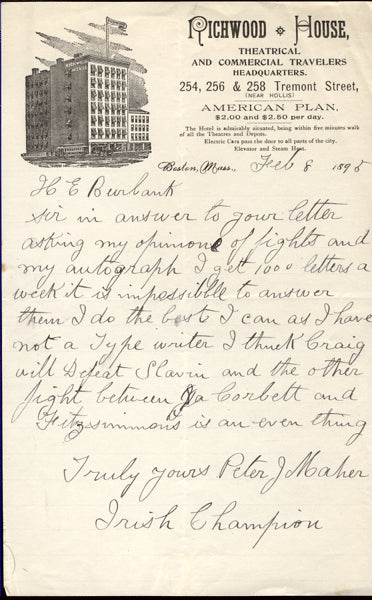 RICHWOOD HOUSE,
THEATRICAL
AND COMMERCIAL TRAVELERS
HEADQUARTERS.
254, 256 & 258 Tremont Street,
(NEAR HOLLIS)
AMERICAN PLAN.
$2.00 and $2.50 per day.
The Hotel is admirably situated, being within five minutes walk
of all the Theatres and Depots.
Electric Cars pass the door to all parts of the city.
Elevator and Steam Heat.
Boston, Mass., Feb 8 1895
H E Burbank
sir in answer to your letter
asking my opinione of fights and
my autograph I get 1000 letters a
week it is impossible to answer
them I do the best I can as I have
not a Type writer I think Craig
will Defeat Slavin and the other
fight between Ja Corbett and
Fitzsimmons is an even thing
Truly yours Peter J Maher
Irish Champion